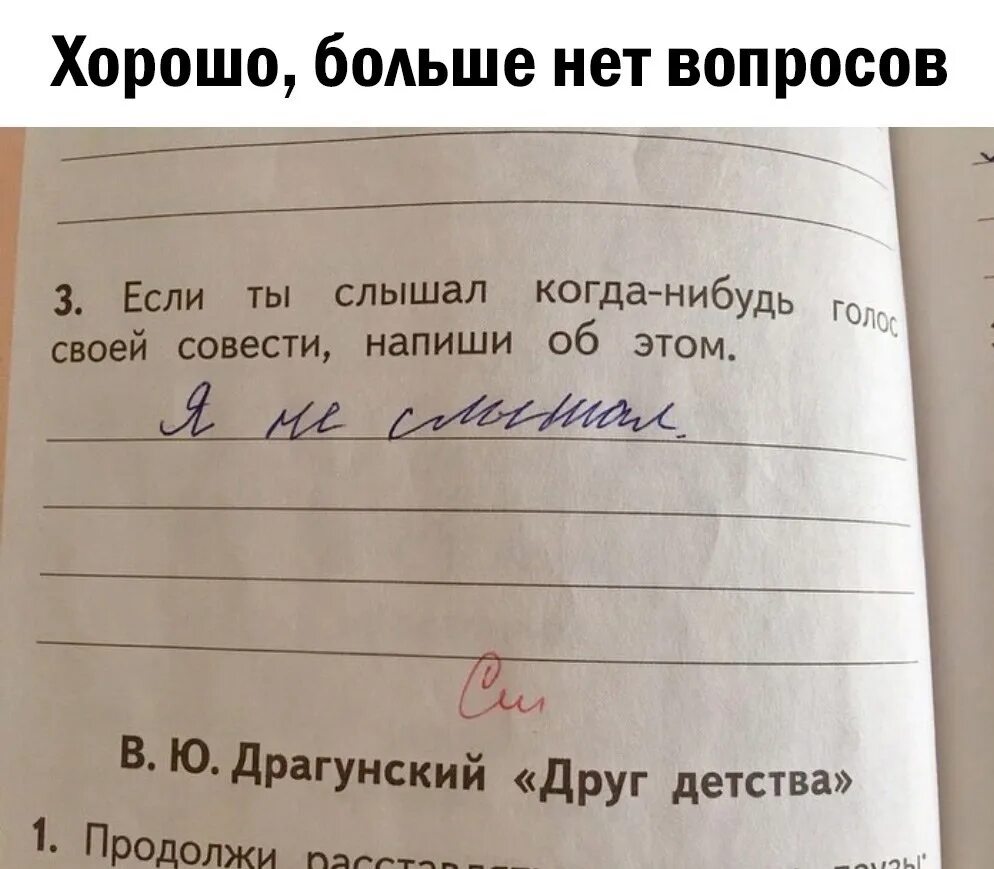 Хорошо, больше нет вопросов
3. Если ты слышал когда-нибудь голос
своей совести, напиши об этом.
Я не слышал.
См
В. Ю. Драгунский «Друг детства»
1. Продолжи